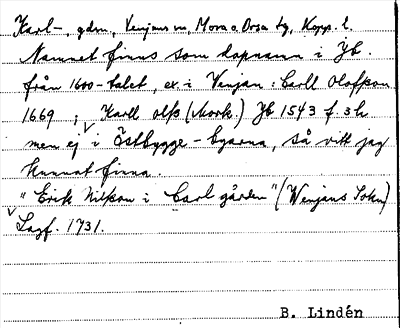 Karl-, gdn, Venjans sn, Mora o. Orsa tg, Kopp. l.
Namnet finns som dopnamn i Jb.
från 1600-talet, ex i Venjan: Carll Olofson
1669 ; Karll olss (Mork.) Jb 1543 f. 3 h
men ej i Östbygge-byarna, så vitt jag
kunnat finna.
"Erik Nilson i Carl gården" (Wenjans Sokn)
Lagf. 1731.
B. Lindén